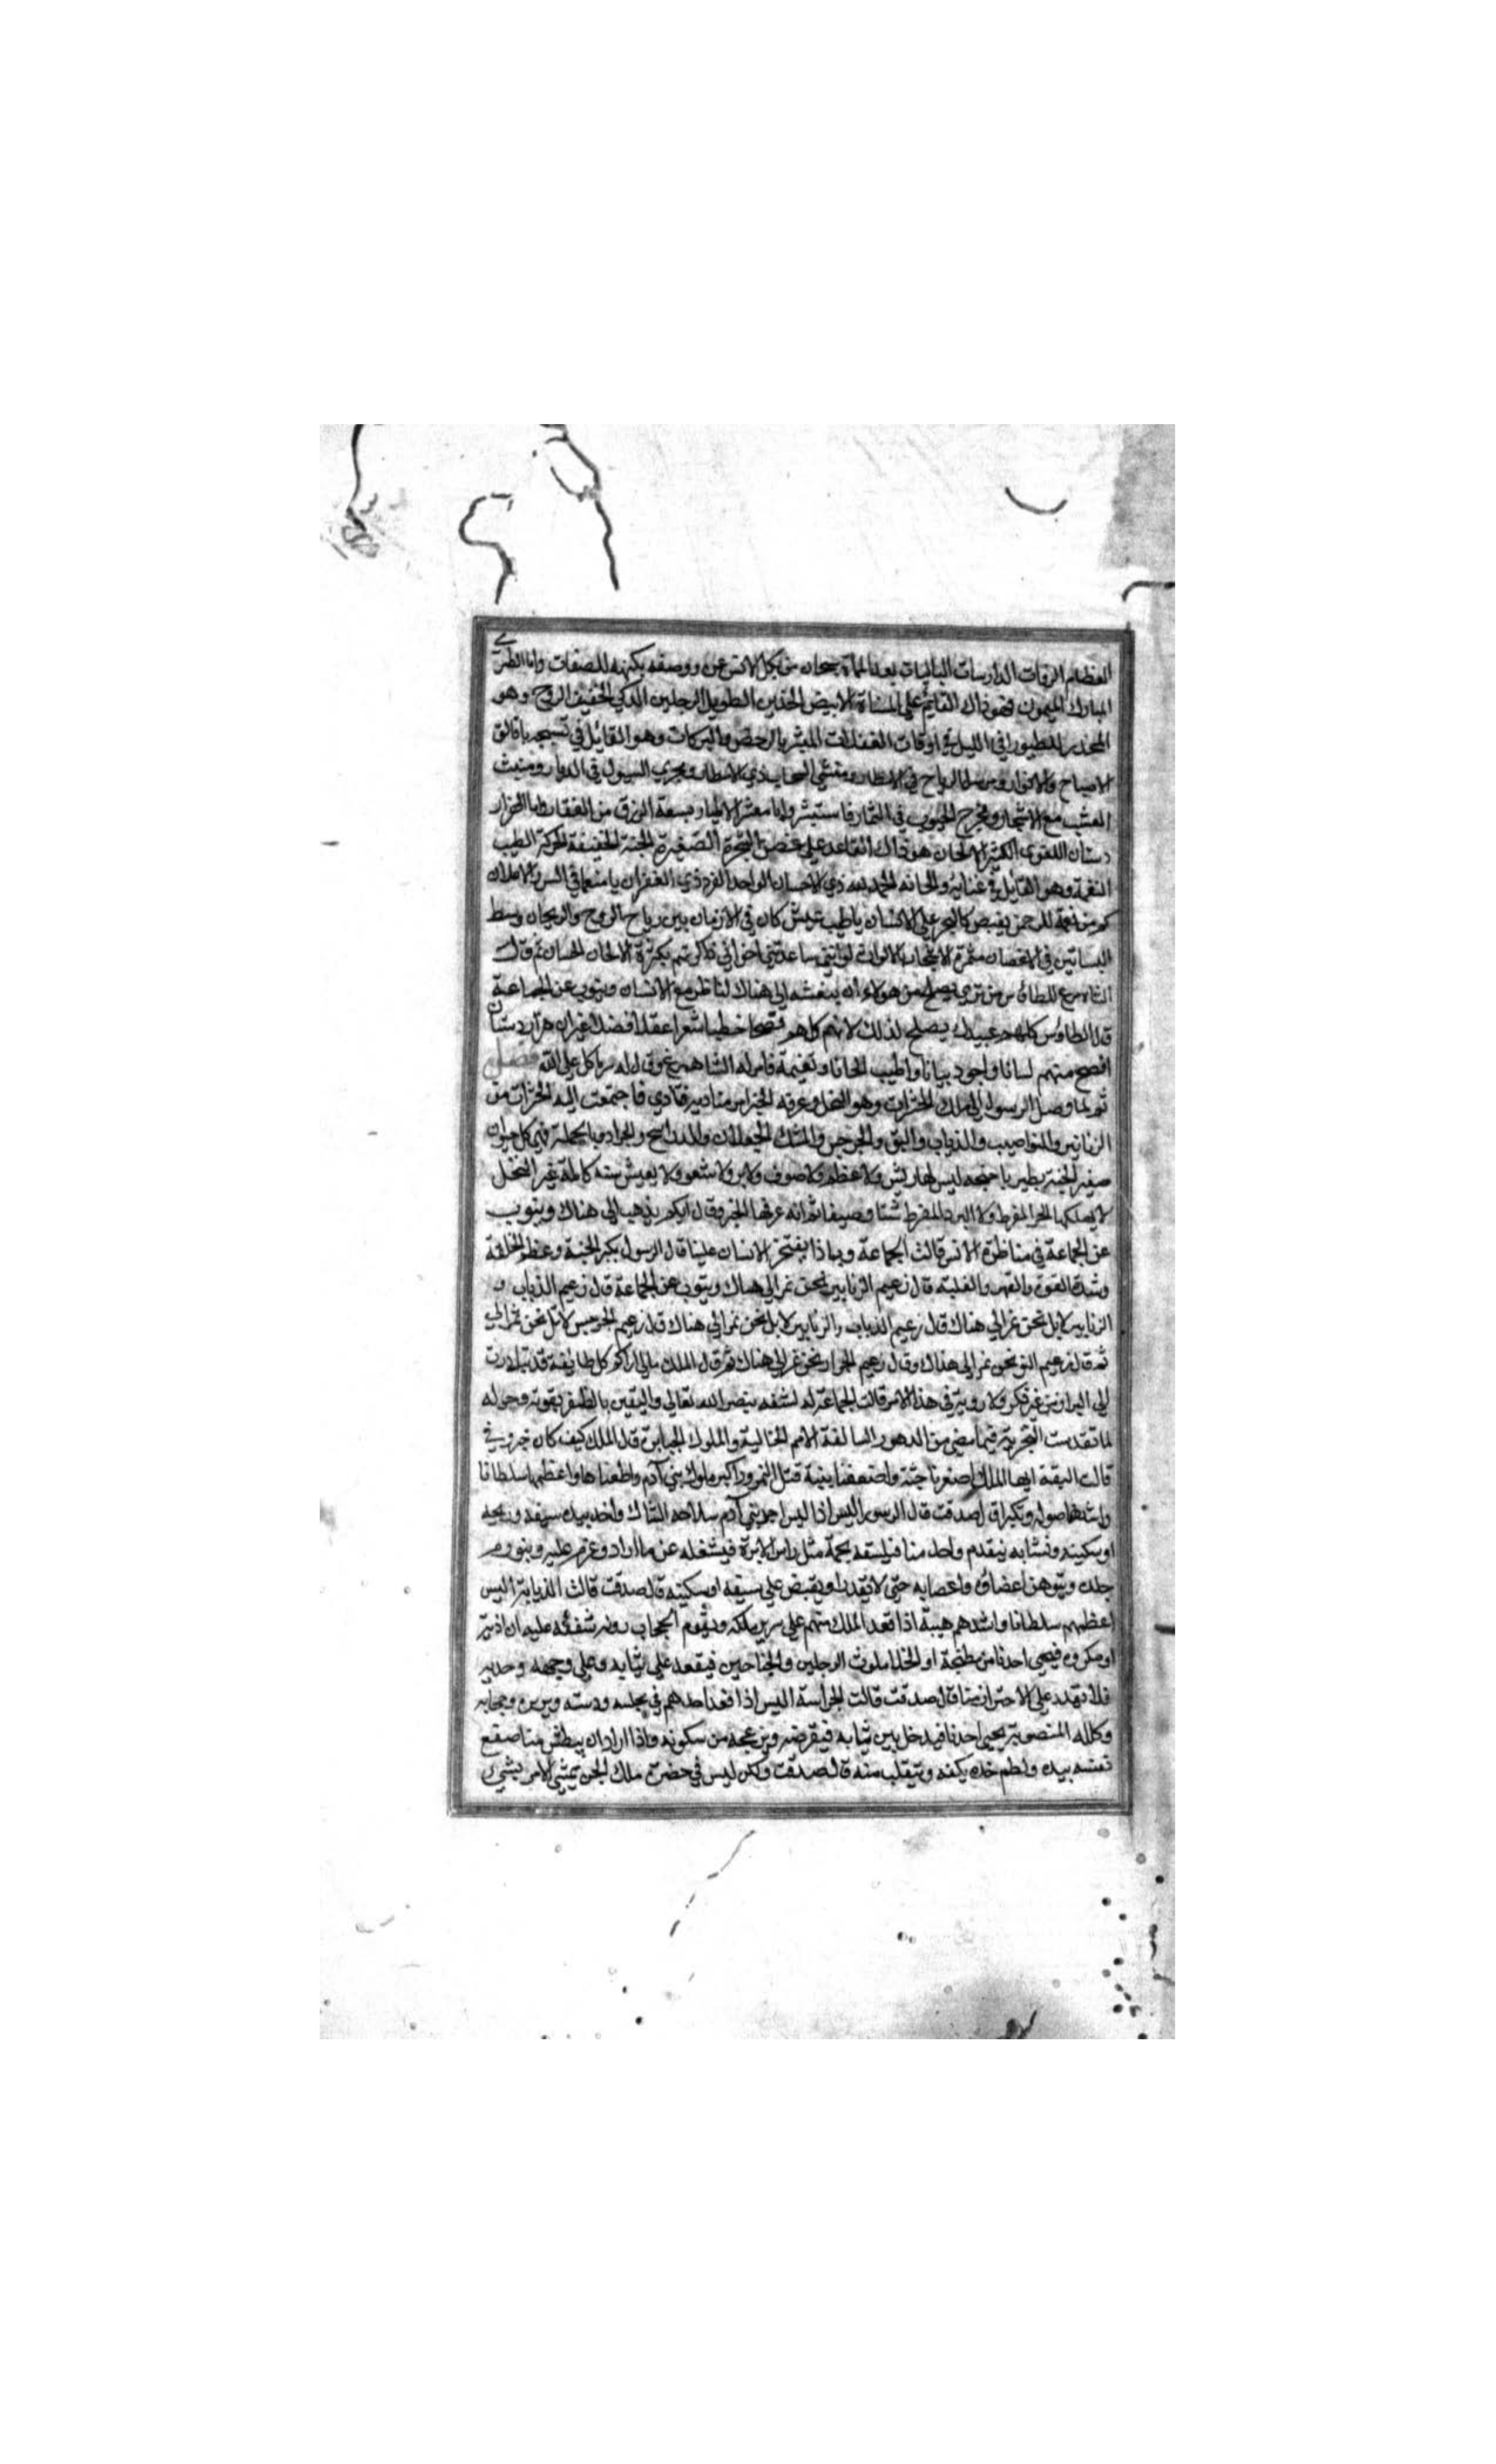 العظام الرفات الدارسات الباليات بعد الماة سبحان من كل الانس عن ووصفه بكنهه للصفات واما الطيرى
المبارك الميمون فهو ذاك القايم على المسناة الابيض الخدين الطويل الرجلين الذكي الخفيف الروح وهو
المحذر للطيور في الليل في اوقات الغفلات المبشر بالرخص والبركات وهو القائل في تسبيحه يا فالق
الاصباح والانوار ومرسل الرياح في الاقطار ومنشي السحاب ذي الامطار ومجري السيول في الديار ومنبت
العشب مع الاشجار ومخرج الحبوب في الثمار فاستبشروا يا معشر الاطيار بسعة الرزق من الغفار واما الهزار
دستان اللغوي الكثير الالحان هو ذاك القاعد على غصن الشجرة الصغيرة الجثة الخفيفة الحركة الطيب
النغمة وهو القايل في غنائه والحانه الحمد لله ذي الاحسان الواحد الفرد ذي الغفران يا منعما في السر والاعلان
كم من نعمة للرحمن يفيض كالبحر على الانسان يا طيب عيش كان في الازمان بين رياح الروح والريحان وسط
البساتين في الاغصان مثمرة الاشجار الالوان لو انني ساعدتني اخواني ذاكرتهم بكثرة الالحان الحسان ثم قال
الشاه مرغ للطاؤس من تري يصلح من هولاء ان يبعثه الى هناك لناظر مع الانسان وينوب عن الجماعة
قال الطاوس كلهم عبيدك يصلح لذلك لانهم كلهم فصحا خطبا شعرا عقلا فضلا غير ان هزار دستان
افصح منهم لسانا واجود بيانا واطيب الحانا ونغيمة فامر له الشاهمرغ وقال له سر تاكل على الله فصل
ثم لما وصل الرسول الى ملك الحشرات وهو النحل وعرفه الخبر امر مناديه فنادي فاجتمعت اليه الحشرات من
الزنابير والذباب والبق والجرجس والجعلان والجراد وبالجملة فهم كل حيوان
صغير الجثة يطير باجنحه ليس لها ريش ولا عظم ولا صوف ولا وبر ولا شعر ولا يعيش سنه كاملة غير النحل
لا يهلكها الحر المفرط ولا البرد المفرط شتا وصيفا ثم انه عرفها الخبر وقال ايكم يذهب الى هناك وينوب
عن الجماعة في مناظرة الانس قالت الجماعة وبماذا يفتخر الانسان علينا قال الرسول بكبر الجثة وعظم الخلقة
وشدة القوة والقهر والغلبة قال زعيم الزنابير نحن نمر الى هناك وينوب عن الجماعة قال زعيم الذباب و
الزنابير لا بل نحن نمر الى هناك قال زعيم الذباب والزنابير لا بل نحن نمر الى هناك قال زعيم الجرجس لا بل نحن نمر الي
ثم قال زعيم البق نحن نمر الى هناك وقال زعيم الجراد نحن نمر الى هناك ثم قال الملك مالي اراكم كل طايفة قد تبادرت
الى البراز من غير فكر ولا رويه في هذا الامر قالت الجماعة له لثقة بنصر الله تعالى واليقين بالظفر بقوته وحوله
لما تقدمت التجربة فيما مضى من الدهور السالفة الامم الخالية والملوك الجبابرة قال الملك كيف كان خبروني
قالت البقة ايها الملك اصغرنا جثة واضعفنا بنية قتل النمرود اكبر ملوك بني آدم واطغاها واعظمها سلطانا
واشدها صولة وتكبرا قال صدقت قال الزنبور اليس اذا لبس احد بني آدم سلاحه الشاك واخذ بيده سيفه ورمحه
او سكينه ونشابه يتقدم واحد منا فيلسعه بحمة مثل راس الابرة فيشغله عن ما اراد وعزم عليه ويتورم
جلده ويتوهن اعضاؤه واعصابه حتى لا يقدر او يقبض على سيفه او سكينه قال صدقت قالت الذبابة اليس
اعظمهم سلطانا واشدهم هيبة اذا قعد الملك منهم على سرير ملكه ويقوم الحجاب دونه شفقة عليه ان اذية
او مكروه فيجي احدنا من مطبخه او الخلا ملوث الرجلين والجناحين فيقعد على ثيابه وعلى وجهه وحديه
فلا يقدر على الاحتراز منا قال صدقت قالت الجراسة اليس اذا قعد احدهم في مجلسه ودسته وسريره وحجابه
وكلله المنصوبة يجي احدنا فيدخل بين ثيابه فيقرضه ويزعجه من سكونه واذا اراد ان يبطش منا صفع
نفسه بيده ولطم خده بكفه وينقلب منه قال صدقت ولكن ليس في حضرة ملك الجن يمشي الامر بشيء